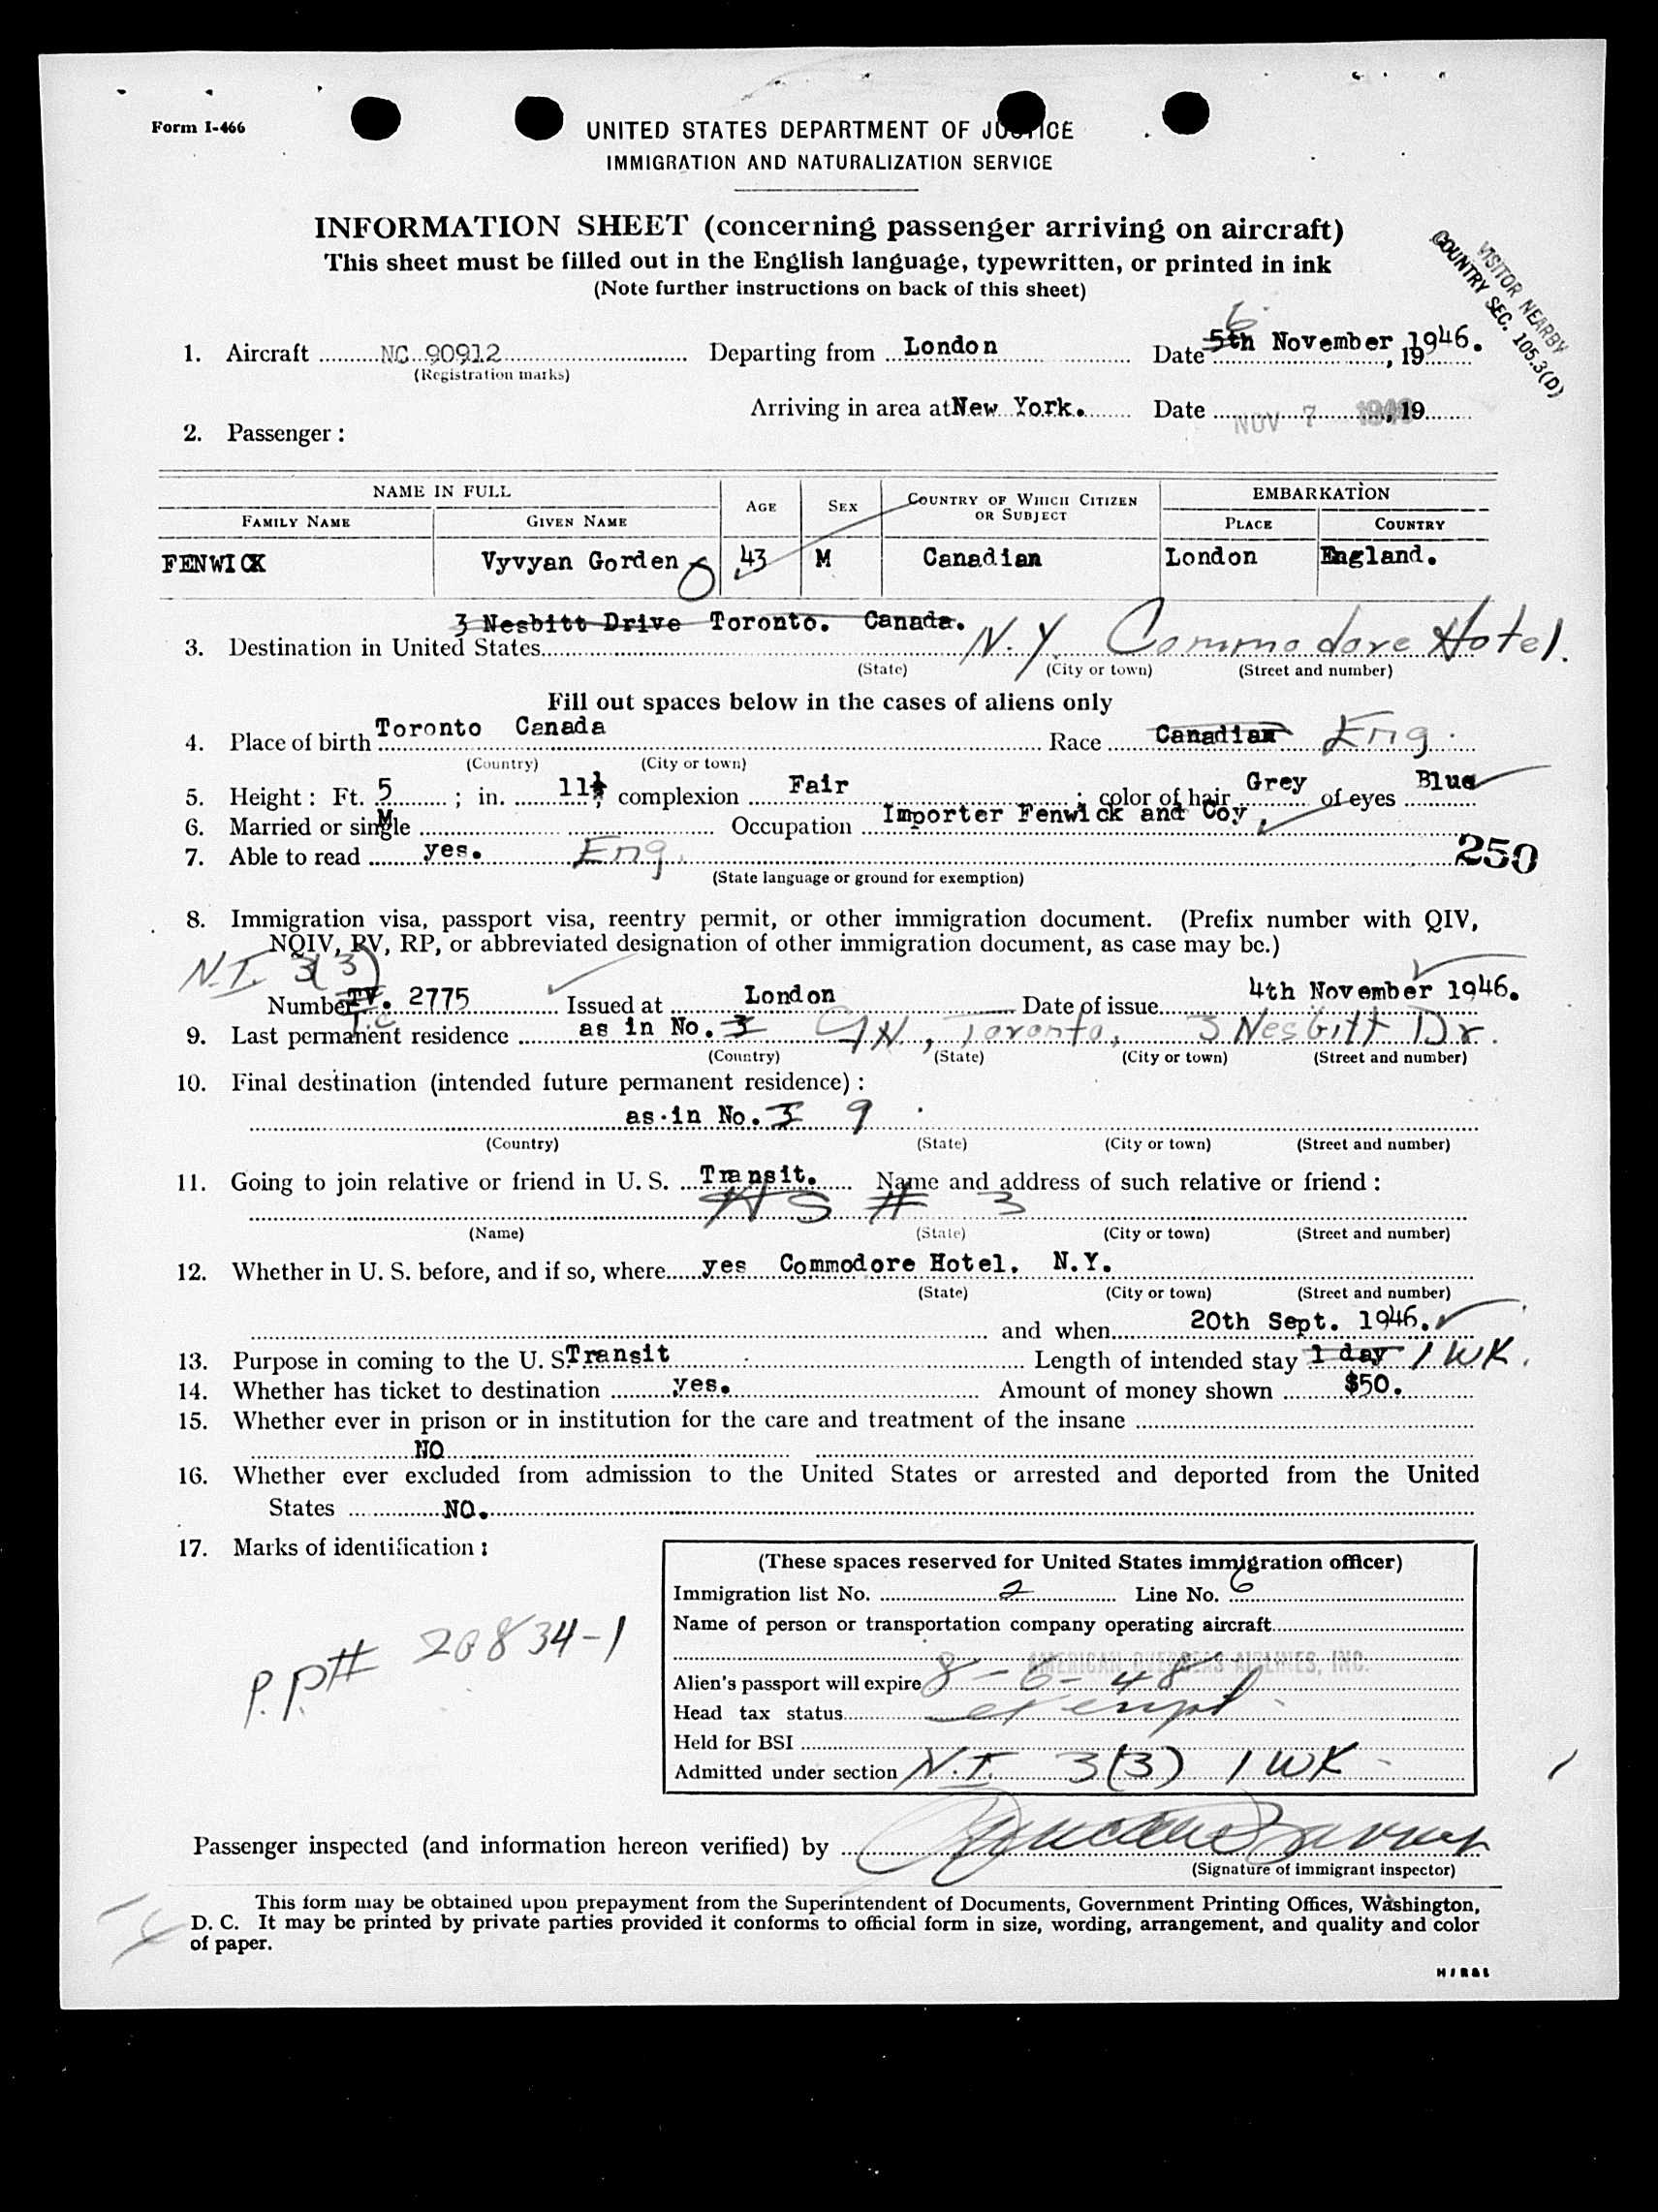 Form I-466
UNITED STATES DEPARTMENT OF JUSTICE
IMMIGRATION AND NATURALIZATION SERVICE
INFORMATION SHEET (concerning passenger arriving on aircraft)
This sheet must be filled out in the English language, typewritten, or printed in ink
(Note further instructions on back of this sheet)
VISITOR NEARBY
COUNTRY SEC. 105.3(D)
6
1. Aircraft NC 90912 Departing from London Date 5th November, 1946.
(Registration marks)
Arriving in area at New York. Date NOV 7 1946, 19
2. Passenger:
NAME IN FULL AGE SEX COUNTRY OF WHICH CITIZEN OR SUBJECT EMBARKATION
FAMILY NAME GIVEN NAME PLACE COUNTRY
FENWICK Vyvyan Gorden 43 M Canadian London England.
3 Nesbitt Drive Toronto. Canada.
3. Destination in United States N.Y. Commodore Hotel.
(State) (City or town) (Street and number)
Fill out spaces below in the cases of aliens only
4. Place of birth Toronto Canada Race Canadian Eng.
(Country) (City or town)
5. Height: Ft. 5; in. 11½, complexion Fair; color of hair Grey of eyes Blue
6. Married or single M Occupation Importer Fenwick and Coy.
7. Able to read yes. Eng. 250
(State language or ground for exemption)
8. Immigration visa, passport visa, reentry permit, or other immigration document. (Prefix number with QIV,
NQIV, PV, RP, or abbreviated designation of other immigration document, as case may be.)
N.I. 3(3)
Number TV. 2775 Issued at London Date of issue 4th November 1946.
T.C
9. Last permanent residence as in No. 3 CAN, Toronto, 3 Nesbitt Dr.
(Country) (State) (City or town) (Street and number)
10. Final destination (intended future permanent residence):
as in No. 3 9
(Country) (State) (City or town) (Street and number)
11. Going to join relative or friend in U. S. Transit. Name and address of such relative or friend:
AS # 3
(Name) (State) (City or town) (Street and number)
12. Whether in U. S. before, and if so, where yes Commodore Hotel. N.Y.
(State) (City or town) (Street and number)
and when 20th Sept. 1946.
13. Purpose in coming to the U. S Transit Length of intended stay 1 day 1 WK.
14. Whether has ticket to destination yes. Amount of money shown $50.
15. Whether ever in prison or in institution for the care and treatment of the insane
NO
16. Whether ever excluded from admission to the United States or arrested and deported from the United
States NO.
17. Marks of identification:
P.P# 20834-1
(These spaces reserved for United States immigration officer)
Immigration list No. 2 Line No. 6
Name of person or transportation company operating aircraft
AMERICAN OVERSEAS AIRLINES, INC.
Alien's passport will expire 8-6-48
Head tax status exempt
Held for BSI
Admitted under section N.I. 3(3) 1 WK
Passenger inspected (and information hereon verified) by
(Signature of immigrant inspector)
This form may be obtained upon prepayment from the Superintendent of Documents, Government Printing Offices, Washington,
D. C. It may be printed by private parties provided it conforms to official form in size, wording, arrangement, and quality and color
of paper.